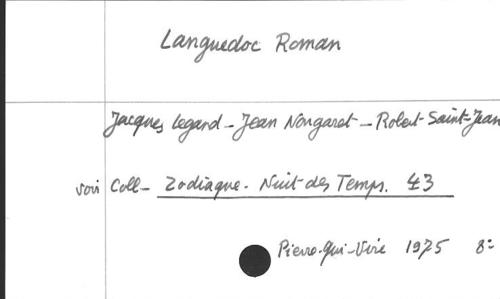 Languedoc Roman
Jacques Legard - Jean Nongaret - Robert Saint-Jean
voir Coll - Zodiaque. Nuit des Temps. 43
Pierre-qui-Vire 1975 8º